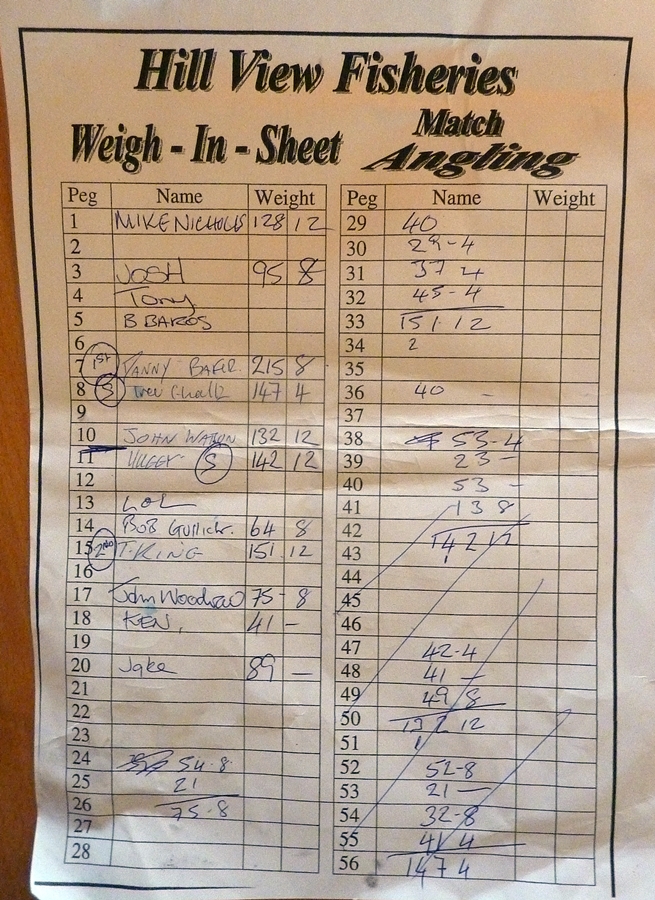 Hill View Fisheries
Weigh - In - Sheet
Match
Angling
Peg Name Weight
1 MIKE NICHOLLS 128 12
2
3 JOSH 95 8
4 Tony
5 B
6
7 1st BAKER 215 8
8 S 147 4
9
10 JOHN WATSON 132 12
11 S 142 12
12
13 LOL
14 BOB 64 8
15 2nd T. KING 151.12
16
17 John 75 - 8
18 KEN. 41 -
19
20 Jake 89 -
21
22
23
24 54.8
25 21
26 75-8
27
28
Peg Name Weight
29 40
30 29-4
31 37 4
32 45-4
33 151.12
34 2
35
36 40 -
37
38 53-4
39 23 -
40 53 -
41 13 8
42
43 142 12
44
45
46
47 42-4
48 41 -
49 49 8
50 132 12
51 1
52 52-8
53 21 -
54 32-8
55 41 4
56 147 4